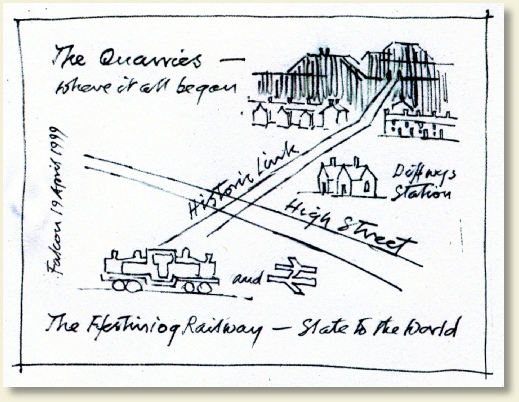 The Quarries —
where it all began
Falcon 19 April 1999
Historic Link
Duffws
Station
High Street
and
The Ffestiniog Railway — Slate to the World